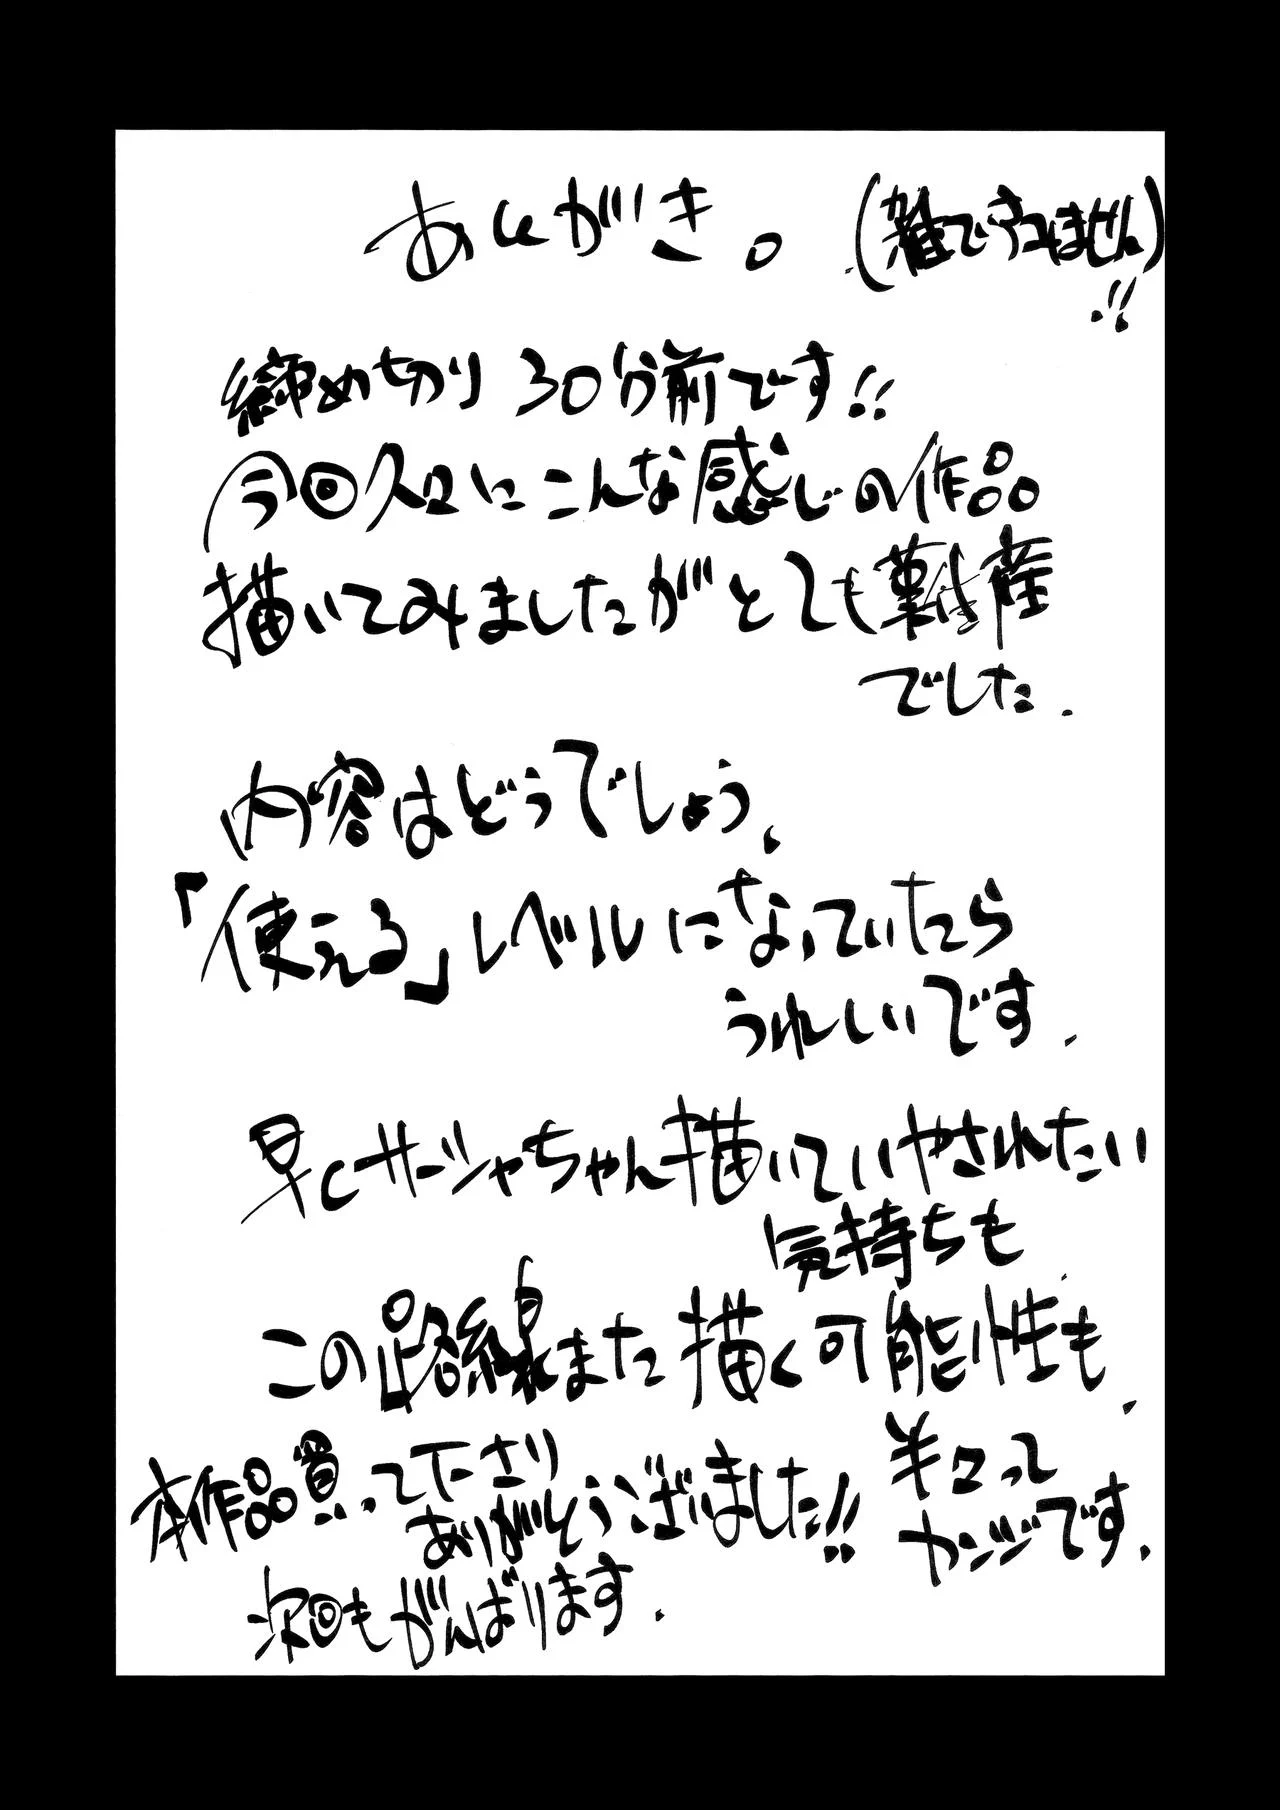 あとがき。
(雑ですみません)!!
締め切り30分前です!!
今回久々にこんな感じの作品
描いてみましたがとても難産
でした.
内容はどうでしょう、
「使える」レベルになっていたら
うれしいです.
早くサーシャちゃん描いていやされたい
気持ちも
この路線また描く可能性も
半々って
カンジです.
本作品買って下さり
ありがとうございました!!
次回もがんばります.